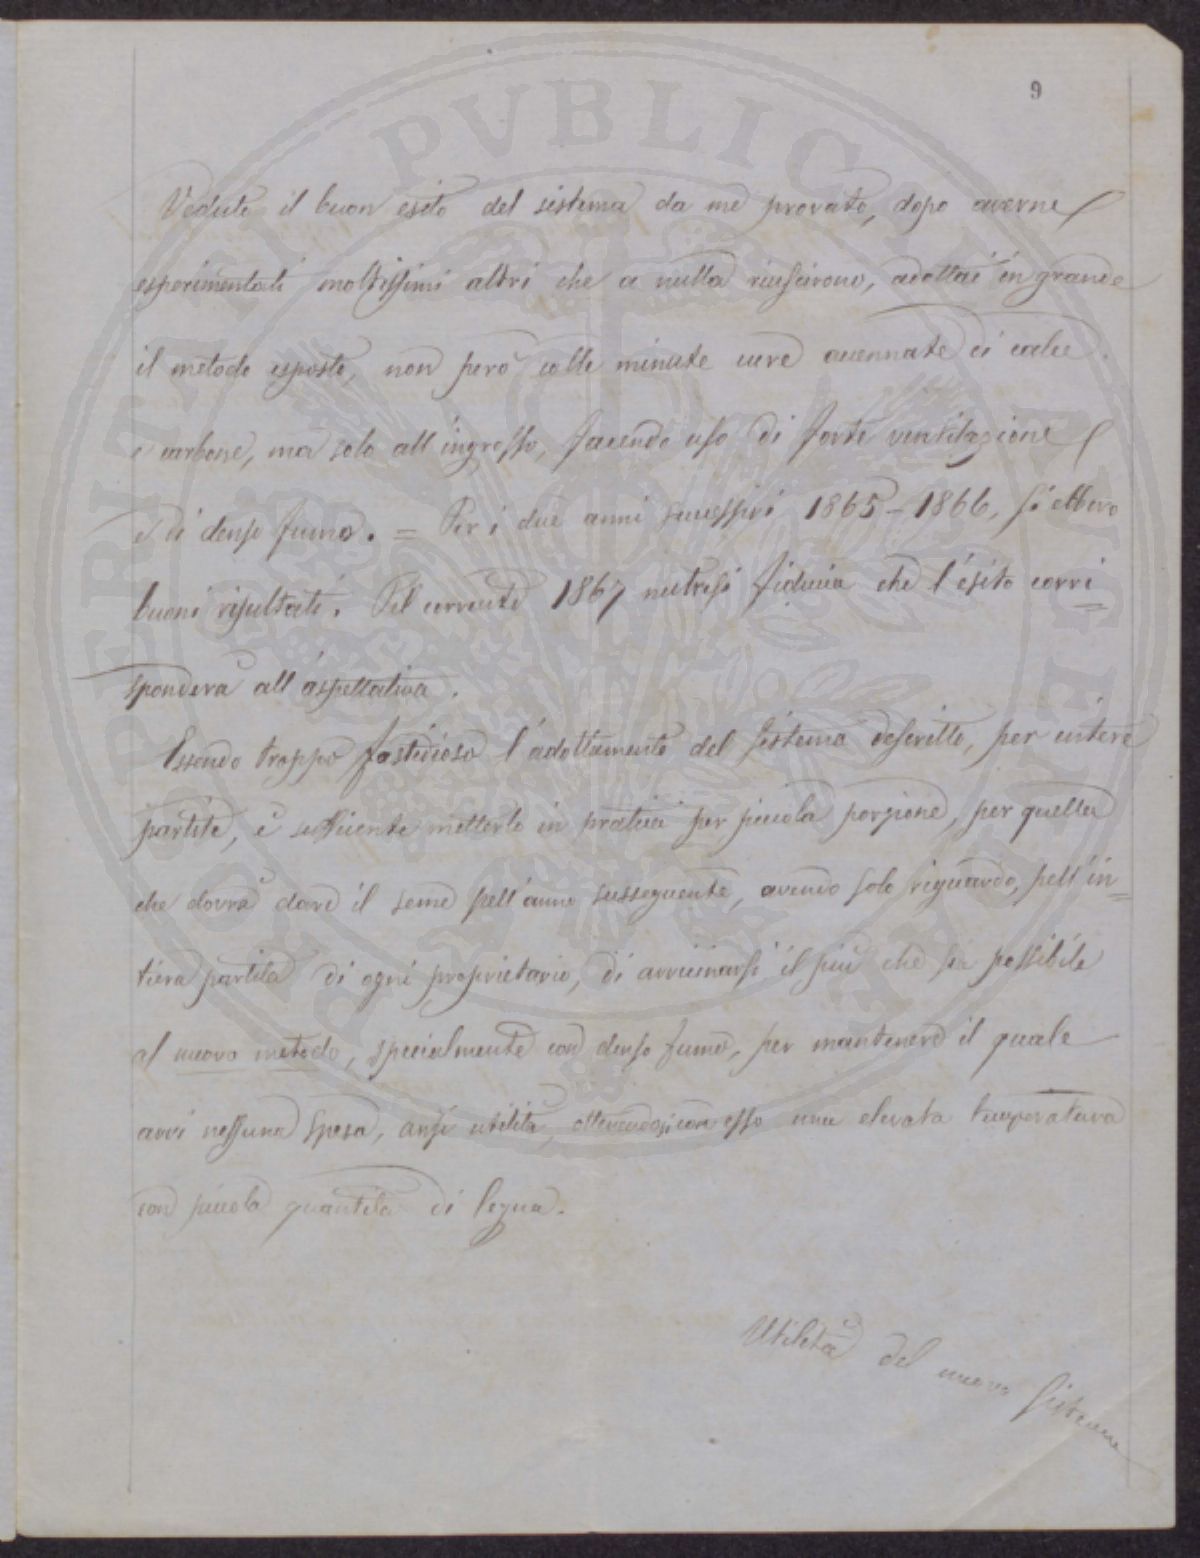 9
Veduto il buon esito del sistema da me provato, dopo averne
esperimentati moltissimi altri che a nulla riuscirono, adottai in grande
il metodo esposto, non però colle minute cure accennate di calce
e carbone, ma solo all'ingrosso, facendo uso di forte ventilazione
e di denso fumo. = Per i due anni successivi 1865-1866, si ebbero
buoni risultati. Pel corrente 1867 nutresi fiducia che l'esito corri=
sponderà all'aspettativa.
Essendo troppo fastidioso l'adottamento del sistema descritto, per intere
partite, è sufficiente metterlo in pratica per piccola porzione, per quella
che dovrà dare il seme pell'anno susseguente, avendo solo riguardo, pell'in=
tiera partita di ogni proprietario, di avvicinarsi il più che sia possibile
al nuovo metodo, specialmente con denso fumo, per mantenere il quale
avvi nessuna spesa, anzi utilità, ottenendosi con esso una elevata temperatura
con piccola quantità di legna.
Utilità del nuovo sistema
PVBLICI AVGENDAE PROSPERITATI